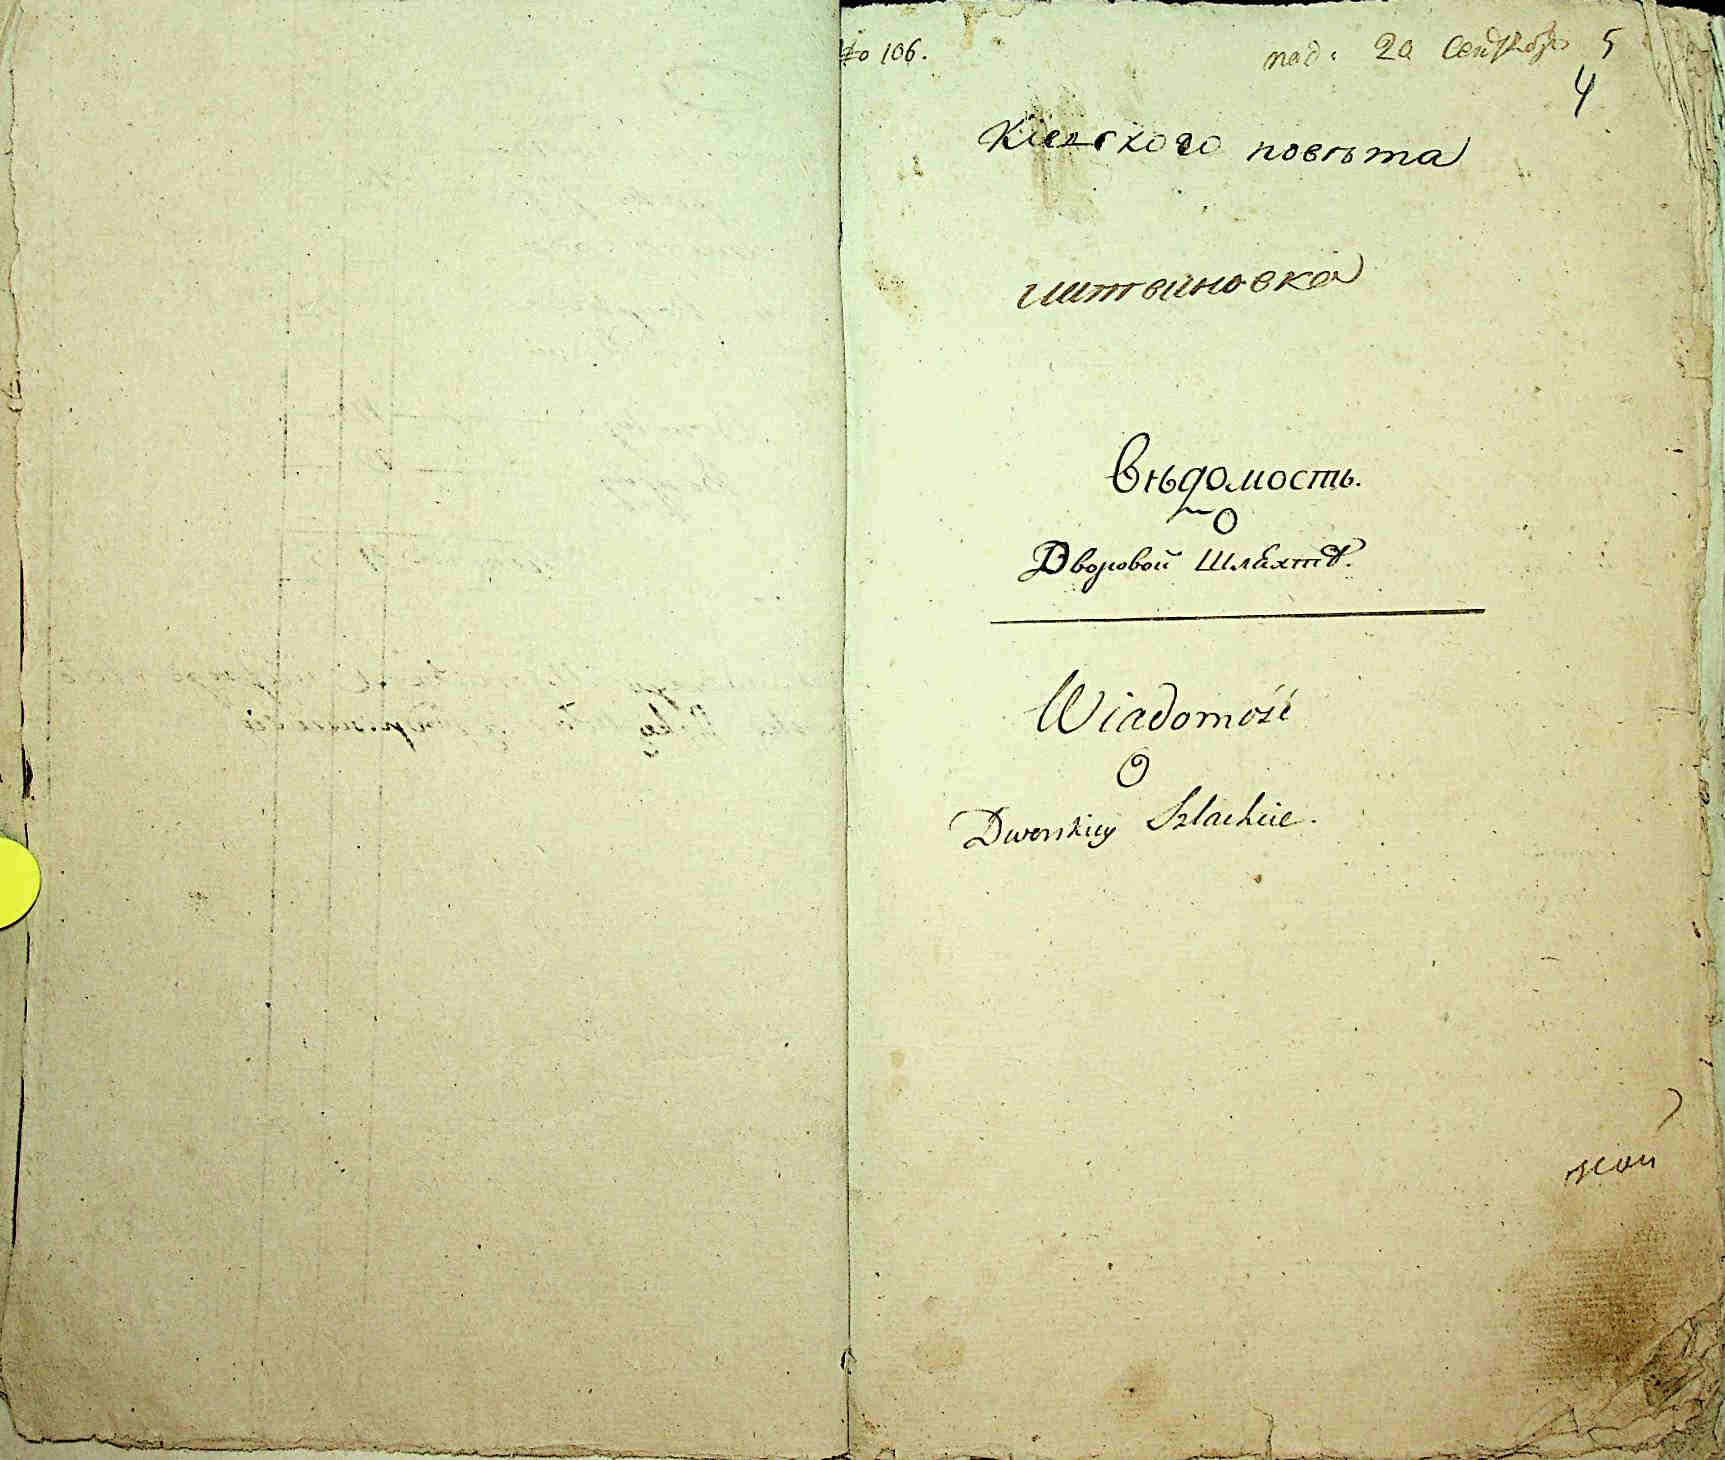 № 106.
под: 20 Сентября 5
4
Кіевского повѣта
Литвиновка
Вѣдомость.
О
Дворовой Шляхтѣ.
Wiadomość
O
Dworskiey Szlachcie.